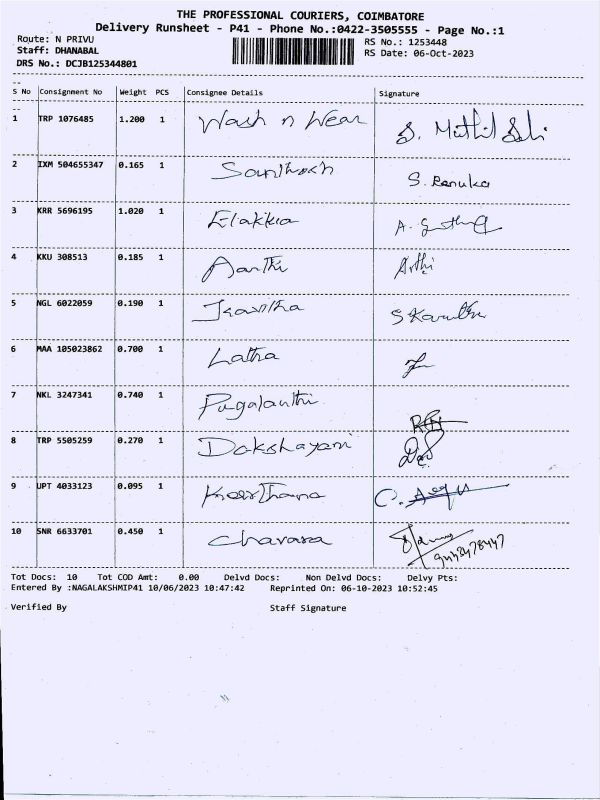 THE PROFESSIONAL COURIERS, COIMBATORE
Delivery Runsheet - P41 - Phone No.:0422-3505555 - Page No.:1
Route: N PRIVU RS No.: 1253448
Staff: DHANABAL RS Date: 06-Oct-2023
DRS No.: DCJB125344801
S No Consignment No Weight PCS Consignee Details Signature
1 TRP 1076485 1.200 1 Wash n Wear
2 IXM 504655347 0.165 1 Santhosh S. Renuka
3 KRR 5696195 1.020 1 Elakkia
4 KKU 308513 0.185 1 Aarthi Arthi
5 NGL 6022059 0.190 1 Kavitha
6 MAA 105023862 0.700 1 Latha
7 NKL 3247341 0.740 1 Pugalanthi
8 TRP 5505259 0.270 1 Dakshayani
9 UPT 4033123 0.095 1 Keerthana
10 SNR 6633701 0.450 1 Chavara
Tot Docs: 10 Tot COD Amt: 0.00 Delvd Docs: Non Delvd Docs: Delvy Pts:
Entered By :NAGALAKSHMIP41 10/06/2023 10:47:42 Reprinted On: 06-10-2023 10:52:45
Verified By Staff Signature